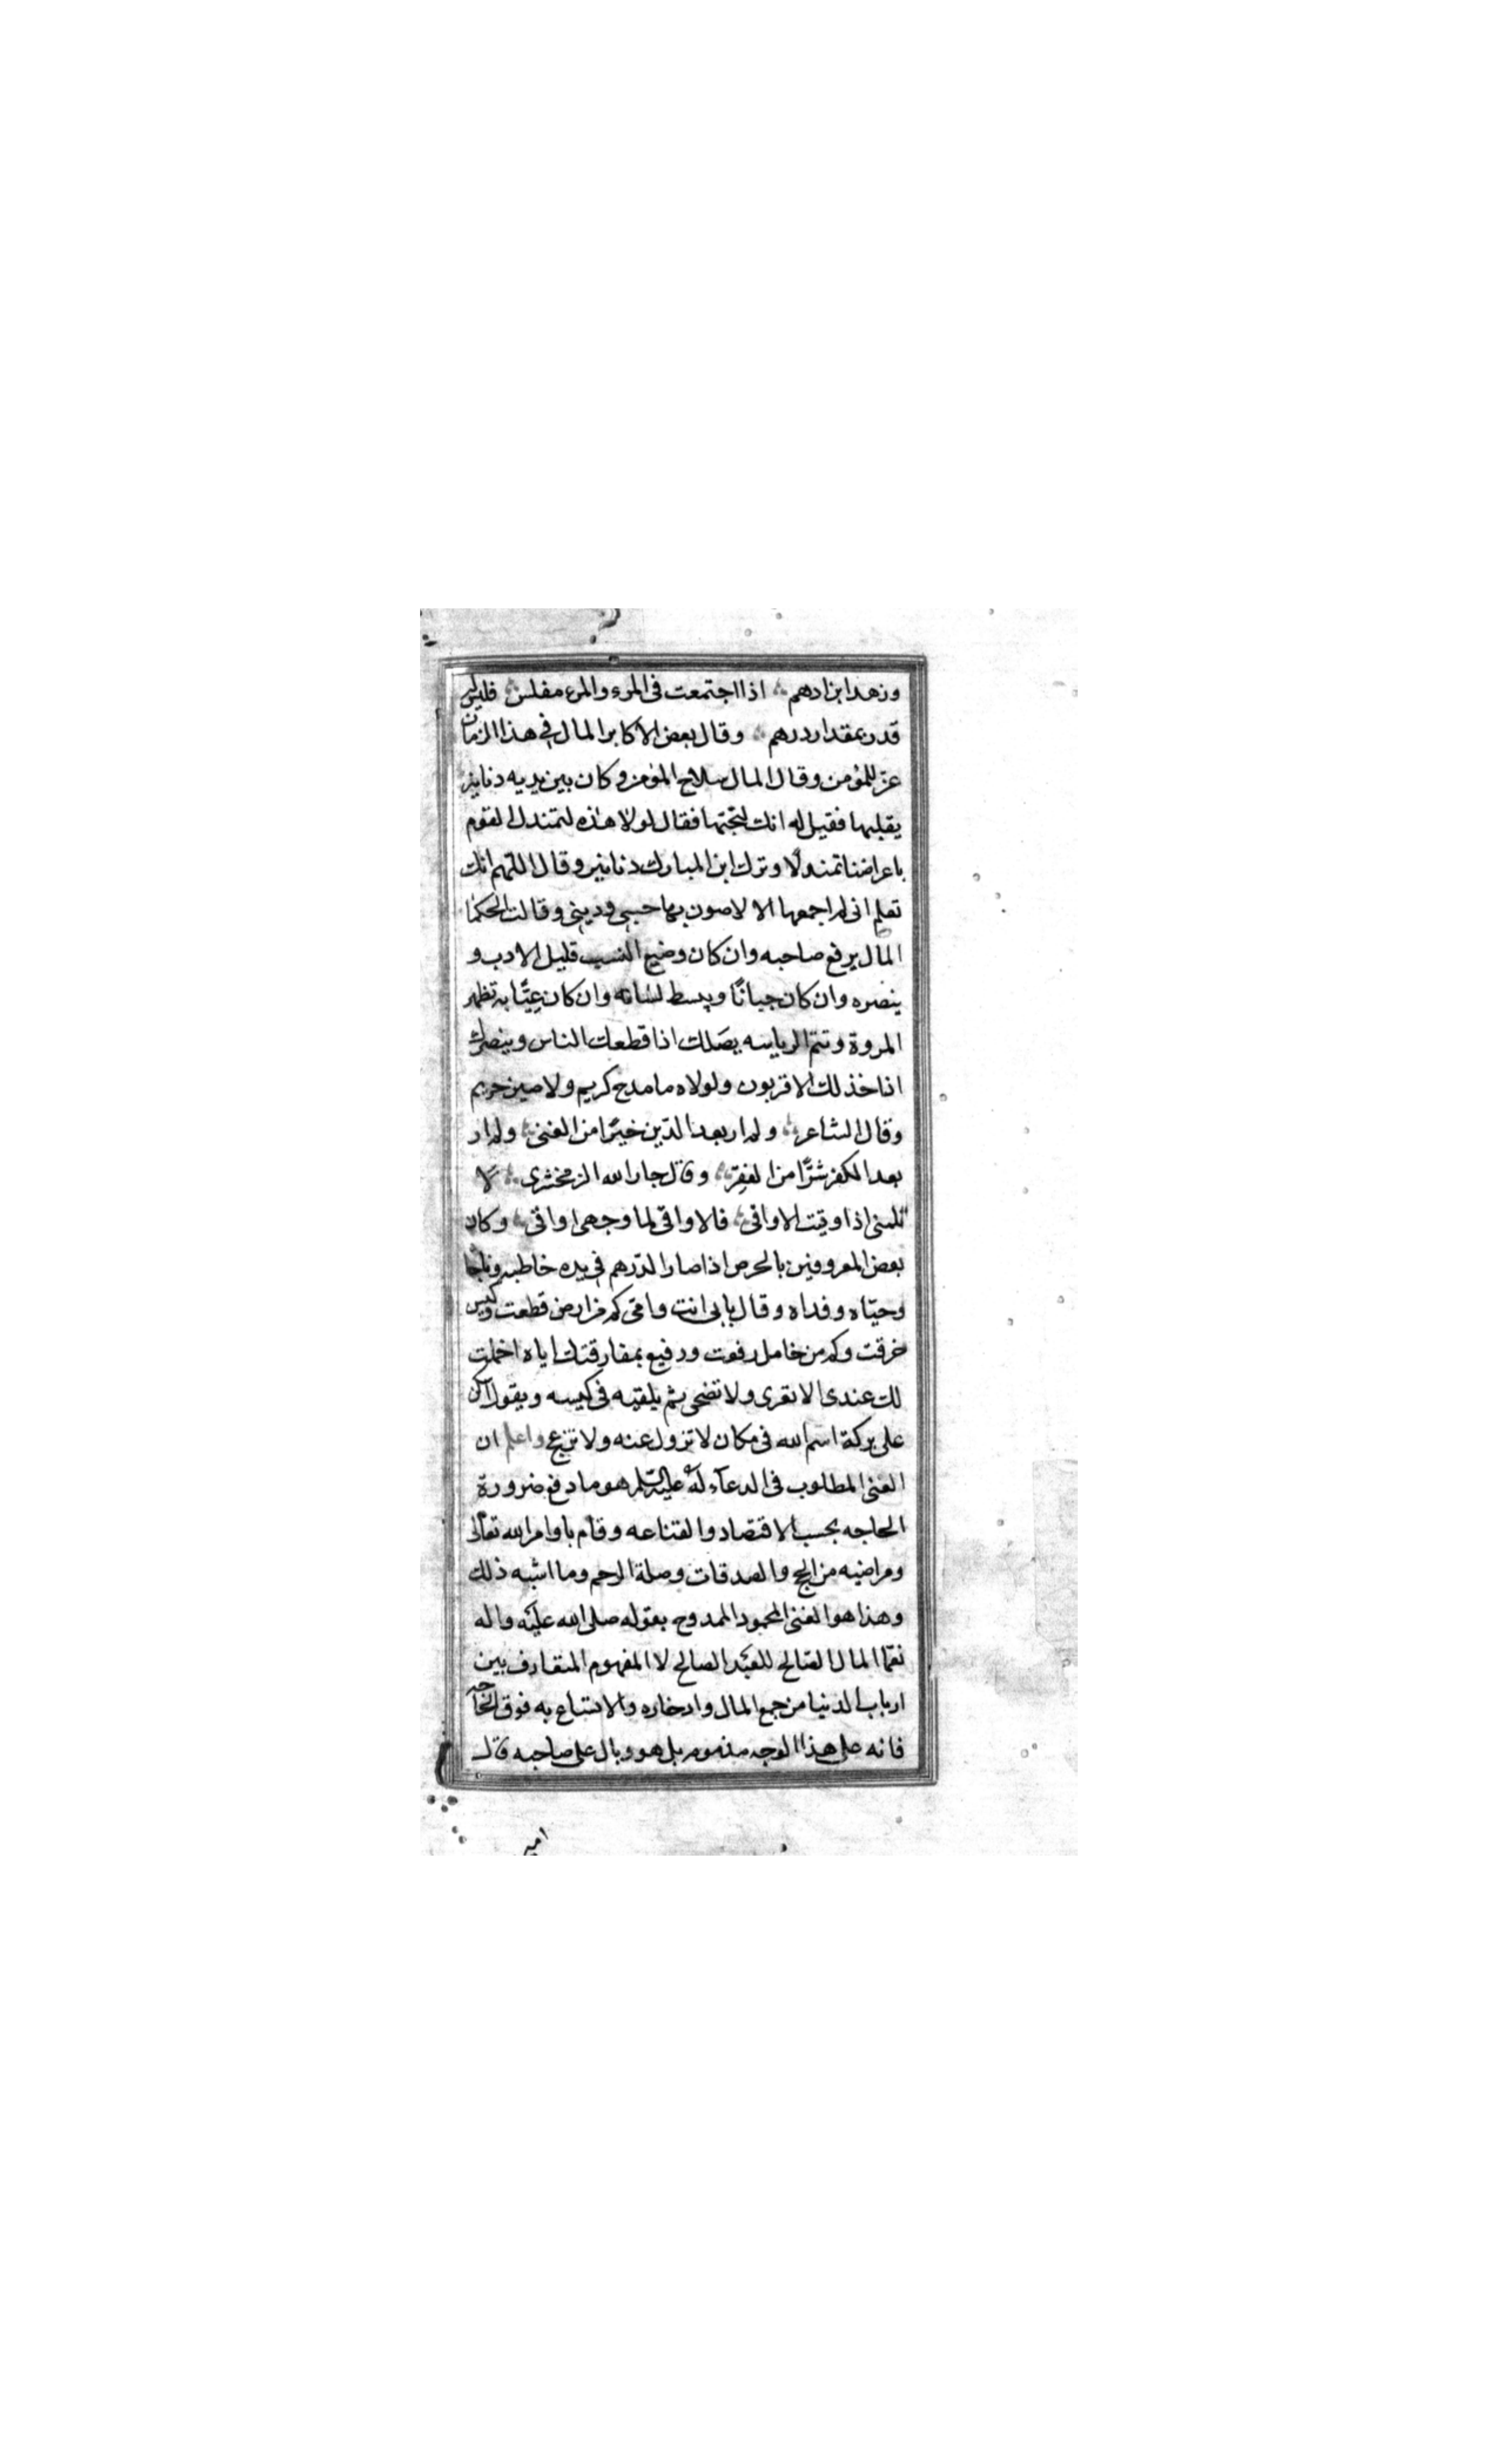 وزهد ابن ادهم اذا اجتمعت فى المرء والمرء مفلس فليس له
قدر بمقدار درهم وقال بعض الاكابر المال فى هذا الزمان
عز للمؤمن وقال المال سلاح المؤمن وكان بين يديه دنانير
يقلبها فقيل له انك لتحبها فقال لولا هذه لتمندل القوم
باعراضنا تمندلا وترك ابن المبارك دنانير وقال اللهم انك
تعلم انى لم اجمعها الا لاصون بها حسبى ودينى وقالت الحكما
المال يرفع صاحبه وان كان وضيع النسب قليل الادب و
ينصره وان كان جبانًا ويبسط لسانه وان كان عيًّا به تظهر
المروة وتتم الرياسه يصلك اذا قطعك الناس وينصرك
اذا خذلك الاقربون ولولاه ما مدح كريم ولا صين حريم
وقال الشاعر ولم ار بعد الدّين خيرًا من الغنى ولم ار
بعد الكفر شرًّا من الفقر وقال جار الله الزمخشرى لا
تلمنى اذا وقيت الاواقى فالاواقى لما وجهى اواقى وكان
بعض المعروفين بالحرص اذا صار الدرهم فى يده خاطبه وناجا
وحيّاه وفداه وقال بابى انت وامى كم من ارض قطعت وكيس
خرقت وكم من خامل رفعت ورفيع بمفارقتك اياه اخملت
لك عندى الا تعرى ولا تضحى ثم يلقيه فى كيسه ويقول اسكن
على بركة اسم الله فى مكان لا تزول عنه ولا تزعج واعلم ان
الغنى المطلوب فى الدعآء له عليه السلم هو ما دفع ضرورة
الحاجه بحسب الاقتصاد والقناعه وقام باوامر الله تعالى
ومراضيه من الحج والصدقات وصلة الرحم وما اشبه ذلك
وهذا هو الغنى المحمود الممدوح بقوله صلى الله عليه واله
نعمّا المال الصالح للعبد الصالح لا المفهوم المتعارف بين
ارباب الدنيا من جمع المال وادخاره والاتساع به فوق الحاجه
فانه على هذا الوجه مذموم بل هو وبال على صاحبه قال
امير